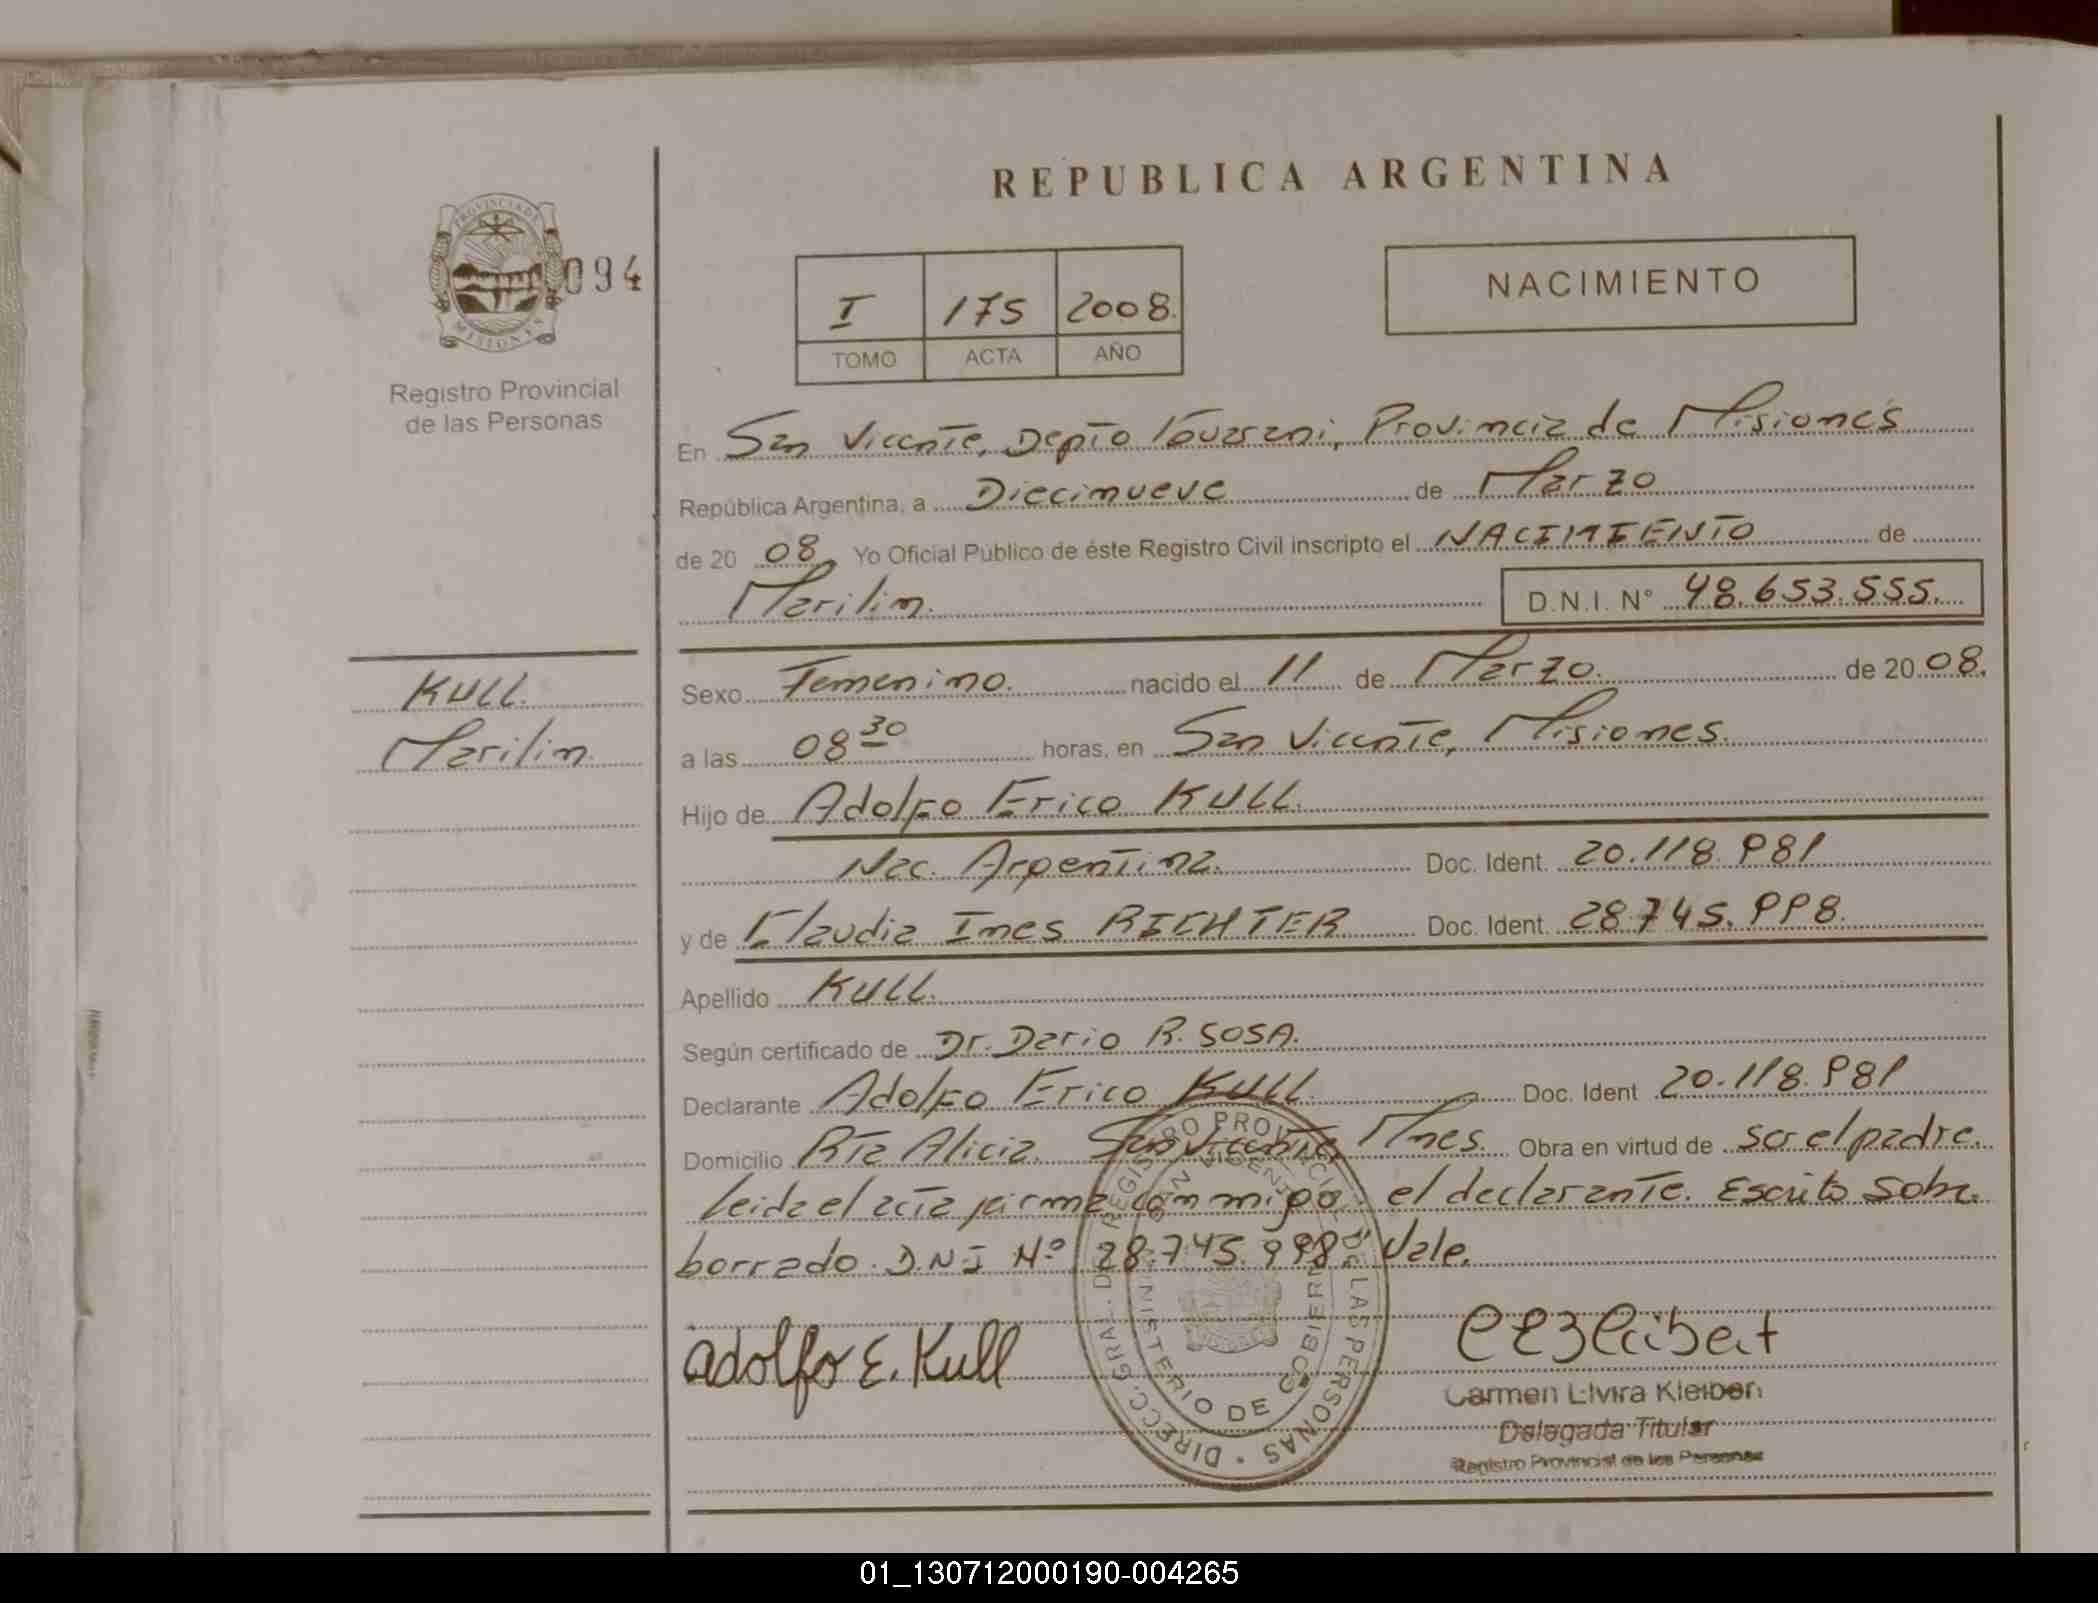 REPUBLICA ARGENTINA
PROVINCIA DE
MISIONES
094
Registro Provincial
de las Personas
I 175 2008.
TOMO ACTA AÑO
NACIMIENTO
En San Vicente, Depto Guarani, Provincia de Misiones
República Argentina, a Diecinueve de Marzo
de 20 08, Yo Oficial Público de éste Registro Civil inscripto el NACIMIENTO de
Marilin. D.N.I. N° 48.653.555.
KULL.
Marilin.
Sexo Femenino. nacido el 11 de Marzo. de 20 08.
a las 08 30 horas, en San Vicente, Misiones.
Hijo de Adolfo Erico KULL.
Nac. Argentina. Doc. Ident. 20.118.981
y de Claudia Ines RICHTER Doc. Ident. 28.745.998.
Apellido KULL.
Según certificado de Dr. Dario R. SOSA.
Declarante Adolfo Erico KULL. Doc. Ident 20.118.981
Domicilio Rta Alicia. San Vicente, Mnes. Obra en virtud de ser el padre.
leida el acta firma conmigo el declarante. Escrito sobre
borrado. D.N.I N° 28.745.998. Vale.
Adolfo E. Kull
DIRECC. GRAL. DEL REGISTRO PROVINCIAL DE LAS PERSONAS
SAN VICENTE
MINISTERIO DE GOBIERNO
Carmen Elvira Kleibert
Delegada Titular
Registro Provincial de las Personas
01_130712000190-004265